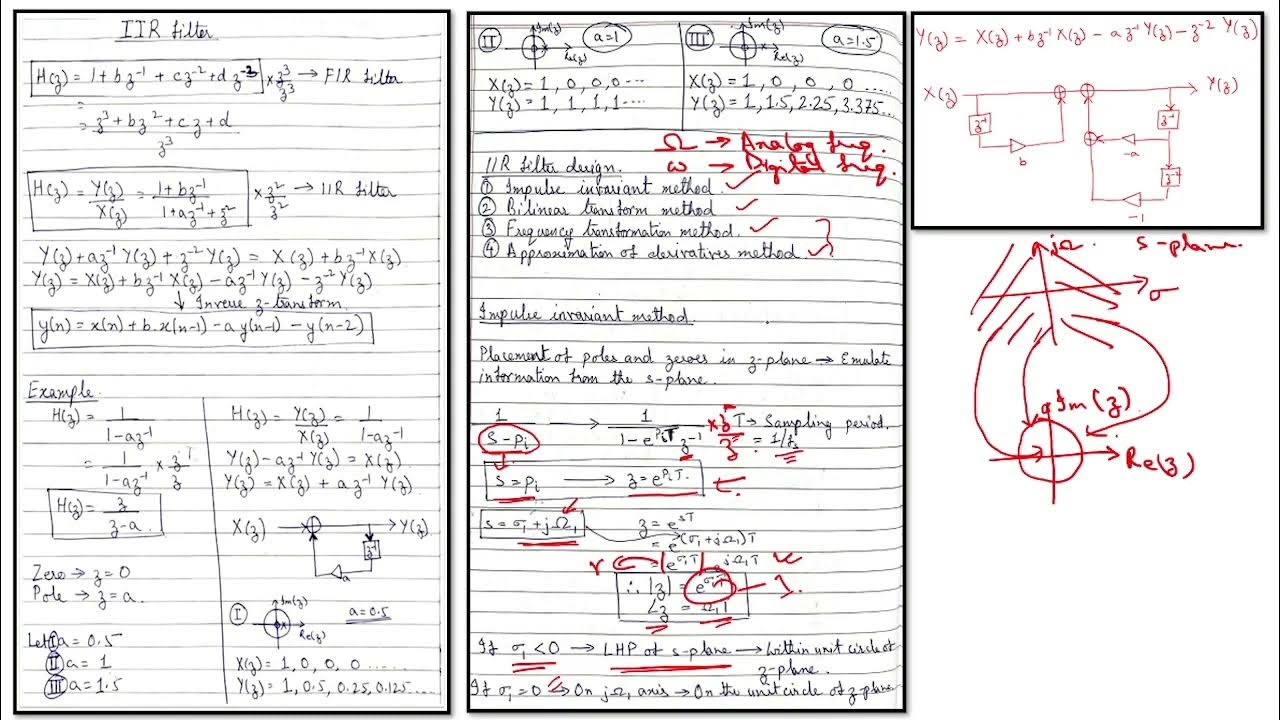 IIR filter
H(z) = 1 + bz⁻¹ + cz⁻² + dz⁻³ × z³/z³ → FIR filter
=
= z³ + bz² + cz + d / z³
H(z) = Y(z)/X(z) = 1 + bz⁻¹ / 1 + az⁻¹ + z⁻² × z²/z² → IIR filter
Y(z) + az⁻¹Y(z) + z⁻²Y(z) = X(z) + bz⁻¹X(z)
Y(z) = X(z) + bz⁻¹X(z) - az⁻¹Y(z) - z⁻²Y(z)
↓ Inverse z-transform
y(n) = x(n) + b.x(n-1) - a y(n-1) - y(n-2)
Example
H(z) = 1 / 1 - az⁻¹
= 1 / 1 - az⁻¹ × z / z
H(z) = z / z - a
Zero → z = 0
Pole → z = a.
Let I a = 0.5
II a = 1
III a = 1.5
H(z) = Y(z)/X(z) = 1 / 1 - az⁻¹
Y(z) - az⁻¹Y(z) = X(z)
Y(z) = X(z) + az⁻¹Y(z)
X(z) + Y(z)
z⁻¹
a
I Im(z) a = 0.5
Re(z)
X(z) = 1, 0, 0, 0 .....
Y(z) = 1, 0.5, 0.25 0.125 ....
II Im(z) a = 1
Re(z)
X(z) = 1, 0, 0, 0 ...
Y(z) = 1, 1, 1, 1 ....
III Im(z) a = 1.5
Re(z)
X(z) = 1, 0, 0, 0 .....
Y(z) = 1, 1.5, 2.25, 3.375...
Ω → Analog freq.
ω → Digital freq.
IIR filter design.
① Impulse invariant method ✓
② Bilinear transform method ✓
③ Frequency transformation method. ✓
④ Approximation of derivatives method. ✓
Impulse invariant method.
Placement of poles and zeroes in z-plane → Emulate
information from the s-plane.
1 / s - pᵢ → 1 / 1 - e^(pᵢT) z⁻¹ × z / z T → Sampling period.
= 1/fₛ
s = pᵢ → z = e^(pᵢT).
s = σ₁ + jΩ₁ z = e^(sT)
= e^((σ₁ + jΩ₁)T)
r ← = e^(σ₁T) e^(jΩ₁T)
∴ |z| = e^(σ₁T) — 1.
∠z = Ω₁T
If σ₁ < 0 → LHP of s-plane → Within unit circle of
z-plane.
If σ₁ = 0 → On jΩ₁ axis → On the unit circle of z-plane
Y(z) = X(z) + bz⁻¹X(z) - az⁻¹Y(z) - z⁻²Y(z)
X(z) + + Y(z)
z⁻¹ z⁻¹
b + -a
z⁻¹
-1
jΩ. s-plane.
σ
Im(z)
Re(z)